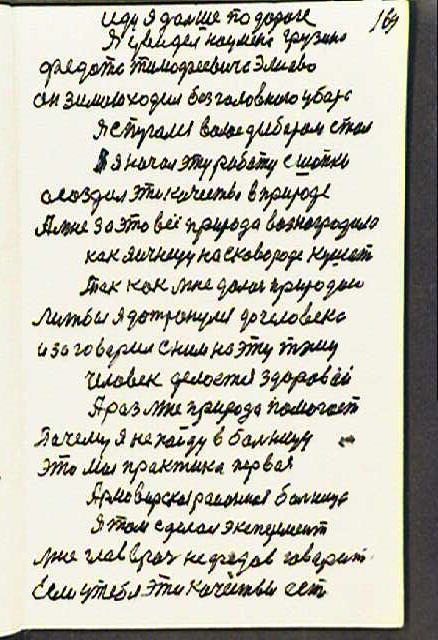 иду я дальше по дороге
169
Я увидел грузина
он зимой ходил без головного убора
Я этими стал
Я начал эту работу с шапки
а создал эти качества в природе
А мне за это всё природа вознаградила
как яичницу на сковороде кушать
Так как мне дала природа
Лишь бы я дотронулся до человека
и заговорил с ним на эту тему
человек делается здоровый
А раз мне природа помогает
Почему я не пойду в больницу
Это моя практика первая
Армавирская районная больница
Я там сделал эксперимент
Мне глав врач говорит
Если у тебя эти качества есть